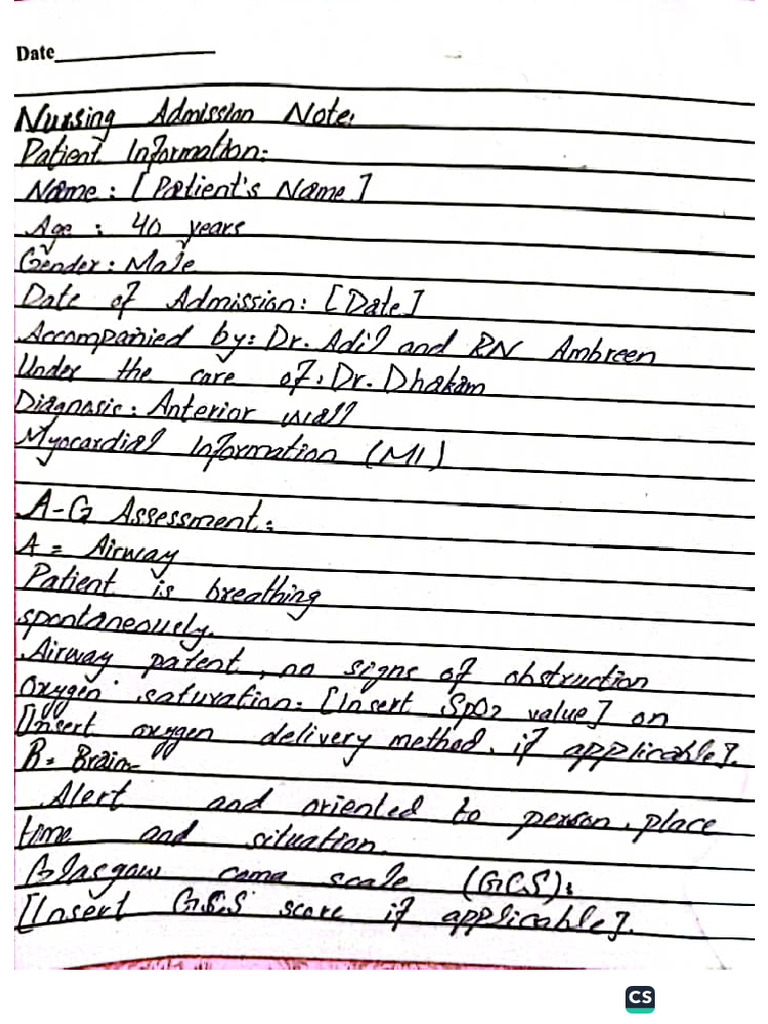 Date
Nursing Admission Note:
Patient Information:
Name: [Patient's Name]
Age: 40 years
Gender: Male
Date of Admission: [Date]
Accompanied by: Dr. Adil and RN Ambreen
Under the care of: Dr. Dhakam
Diagnosis: Anterior wall
Myocardial Information (MI)
A-G Assessment:
A = Airway
Patient is breathing
spontaneously.
Airway patent, no signs of obstruction
Oxygen saturation: [Insert SpO2 value] on
[Insert oxygen delivery method, if applicable].
B = Brain
Alert and oriented to person, place
time and situation.
Glasgow coma scale (GCS):
[Insert G.C.S score if applicable].
CS